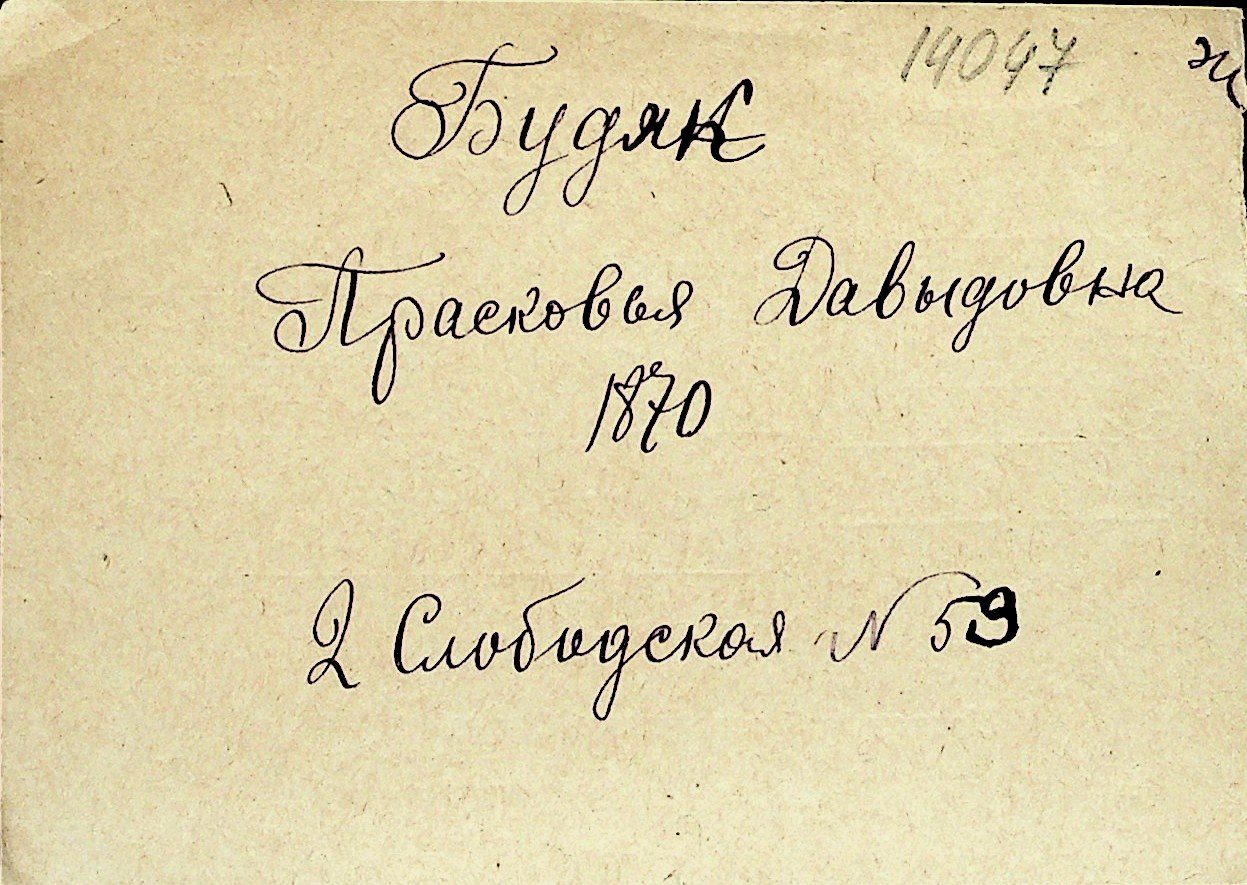 14047 ж
Будяк
Прасковья Давыдовна
1870
2 Слободская N 59